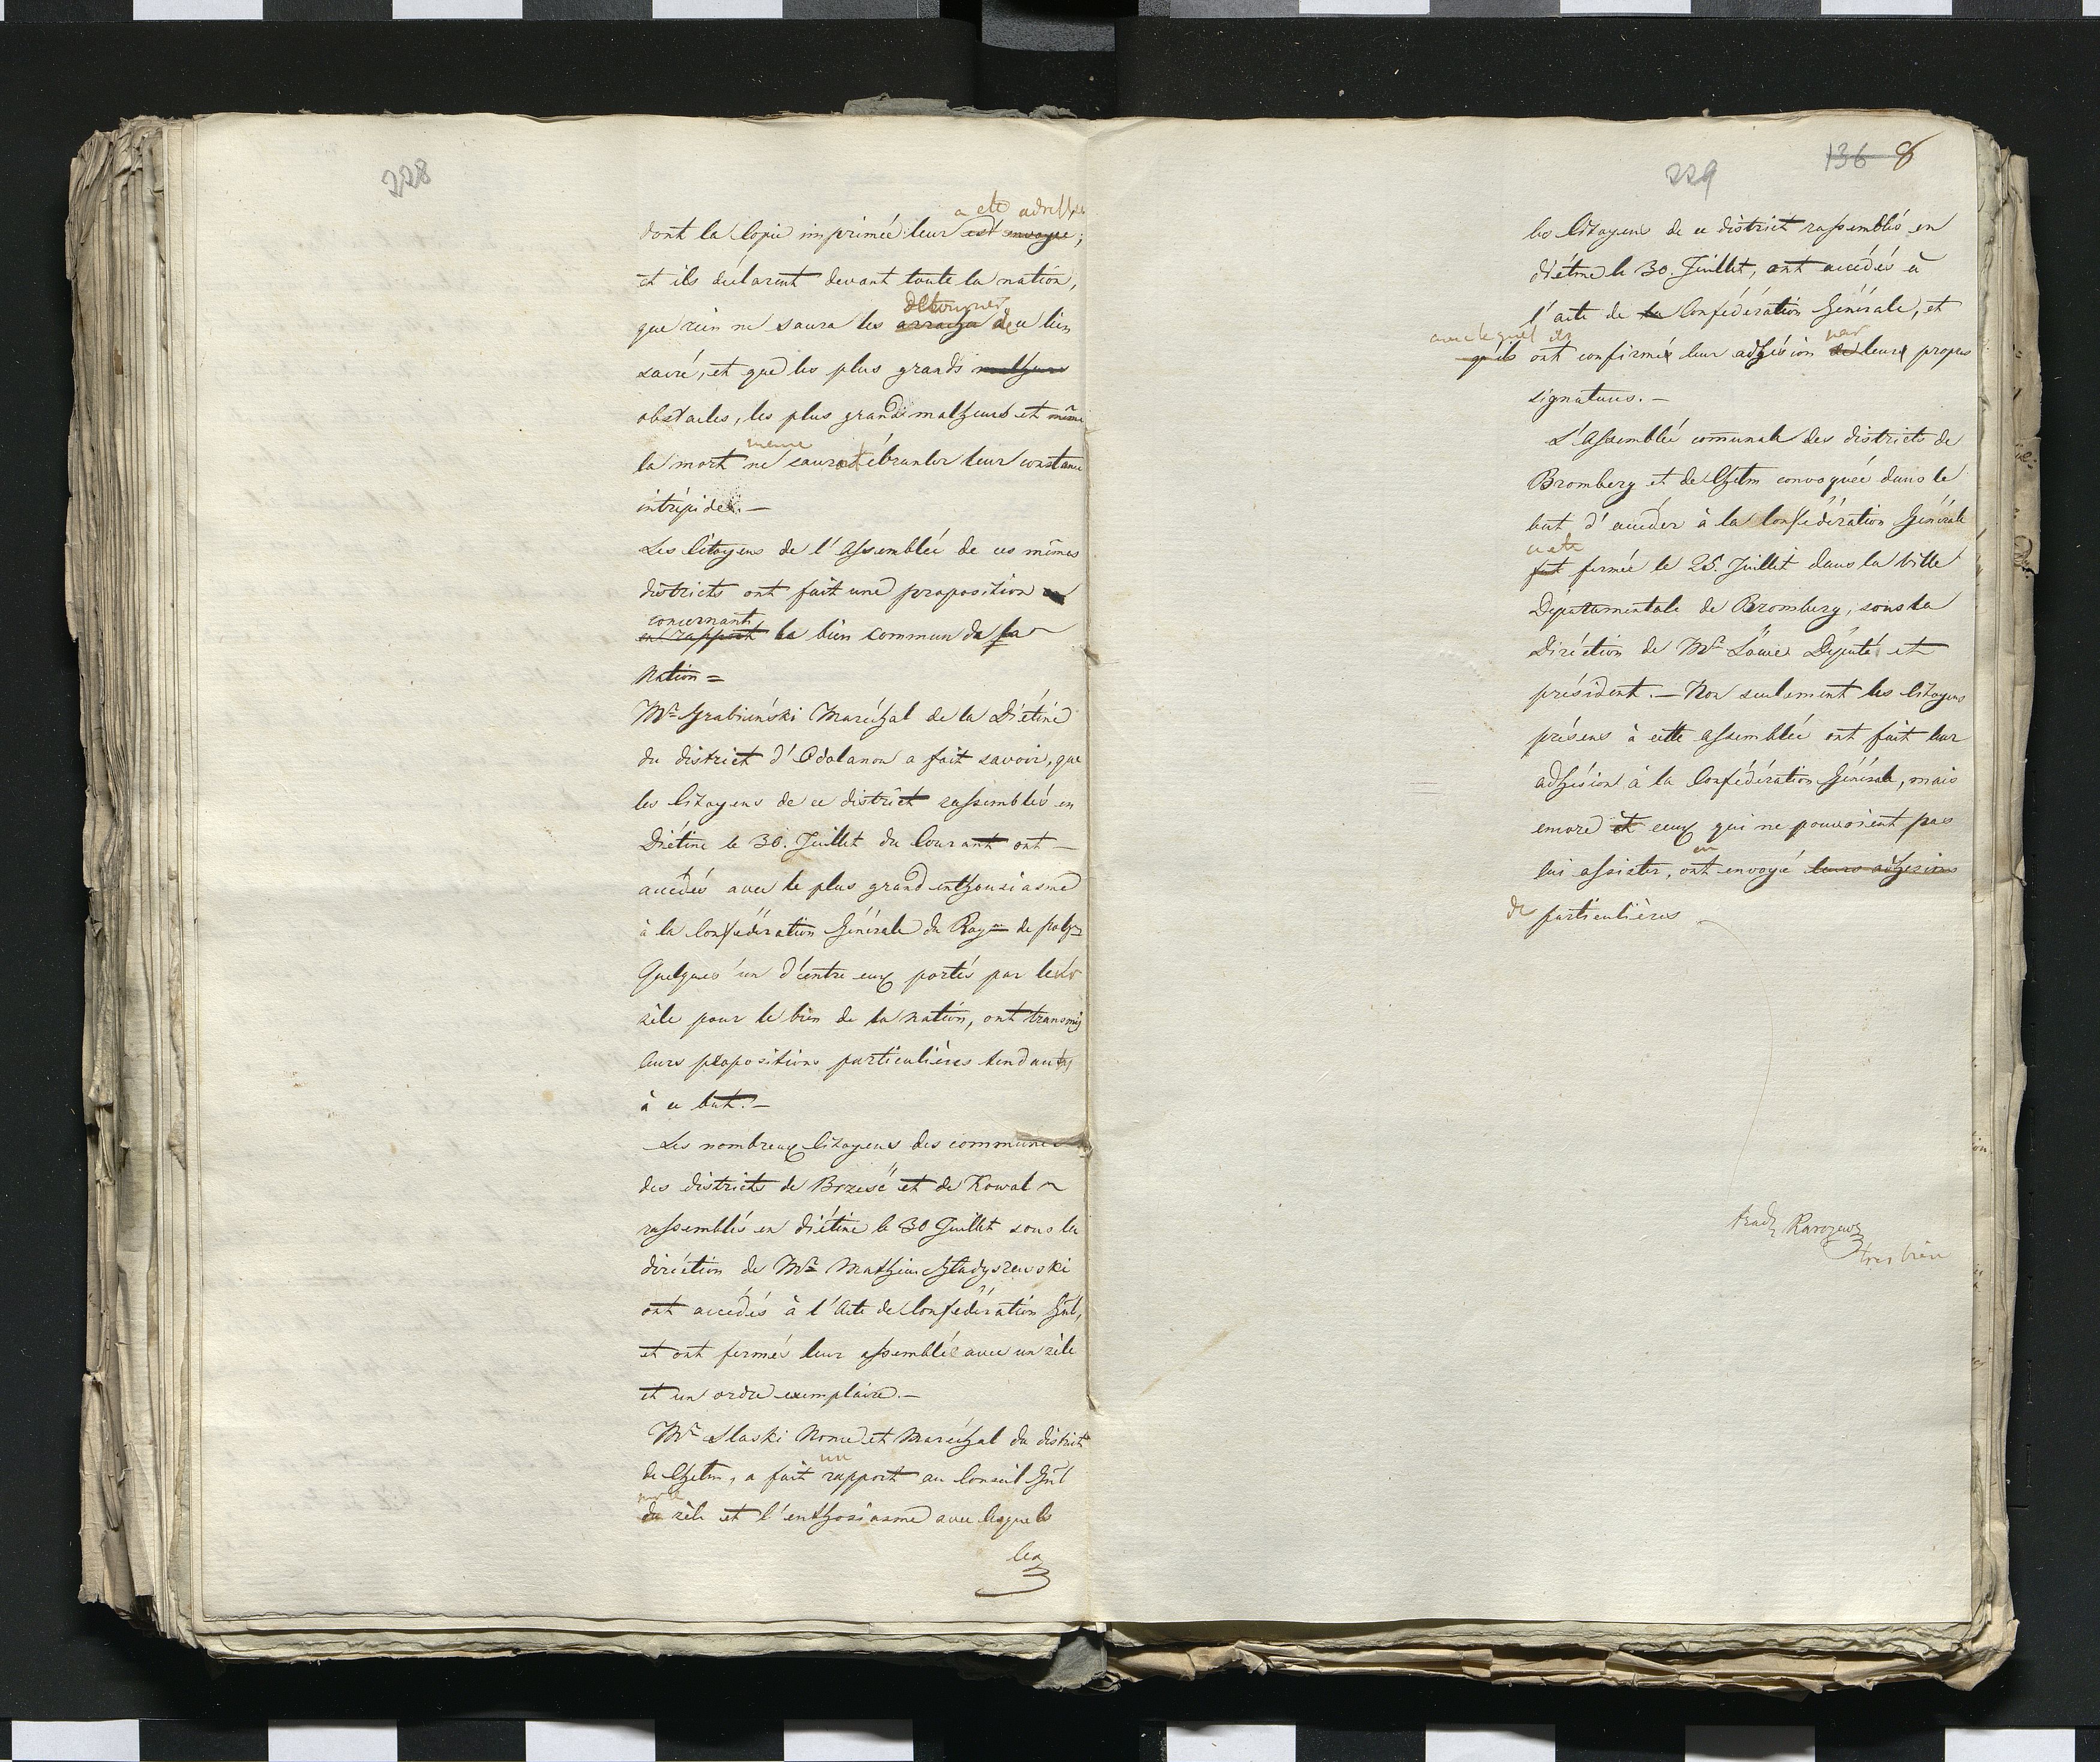 228
a eté adressée
dont la Copie imprimée leur est envoyée ;
et ils déclarent devant toute la nation,
detourner
que rien ne saura les arracher de ce lien
sacré, et que les plus grands malheurs
obstacles, les plus grands malheurs et même
meme
la mort ne saurait ébranler leur constance
intrépide. —
Les Citoyens de l'Assemblée de ces mêmes
districts ont fait une proposition
concernant
en rapport le bien commun de la
Nation =
Mr Grabieński Maréchal de la Diétine
du district d'Odolanon a fait savoir, que
les Citoyens de ce district rassemblés en
Diétine le 30. Juillet du Courant ont —
accédés avec le plus grand enthousiasme
à la Confédération Générale du Roy-me de pologne
Quelques'un d'entre eux portés par leur
zèle pour le bien de la Nation, ont transmis
leurs propositions particulières tendants
à ce but. —
Les nombreux Citoyens des communes
des districts de Brześć et de Kowal
rassemblés en diétine le 30 Juillet sous la
diréction de Mr Mathieu Gładyszewski
ont accédés à l'Acte de Confédération Gnl,
et ont fermés leur assemblée avec un zèle
et un ordre exemplaire. —
Mr Slaski Nonce et Maréchal du district
un
de Chelm, a fait rapport au Conseil Gnl
du zèle et l'enthosiasme avec lesquels
les
229
136 8
les Citoyens de ce district rassemblés en
diétine le 30. Juillet, ont accédés à
l'acte de la Confédération Générale, et
avec lequel ils par
qu'ils ont confirmés leur adhésion de leurs propres
signatures. —
L'Assemblée communale des districts de
Bromberg et de Chelm convoquée dans le
but d'accéder à la Confédération Générale
a eté
fut fermée le 25. Juillet dans la Ville
Départamentale de Bromberg, sous la
Diréction de Mr Député et
président. — Non seulement les Citoyens
présens à cette assemblée ont fait leur
adhésion à la Confédération Générale, mais
encore et ceux qui ne pouvoient pas
en
lui assister, ont envoyé leurs adhesions
de particulières
trad
tres bien